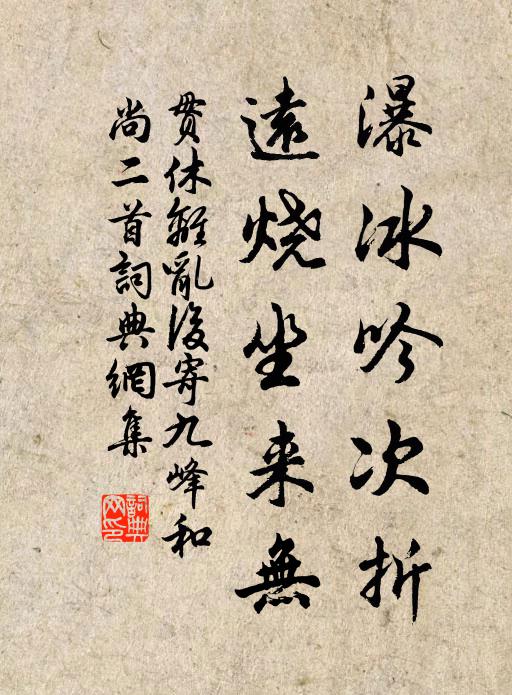 瀑冰吟次折
遠燒坐来無
贯休離亂後寄九峰和
尚二首詞典網集
詞典
网印